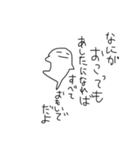 なにが
おこっても
あしたになれば
すべて
おもいで
だよ